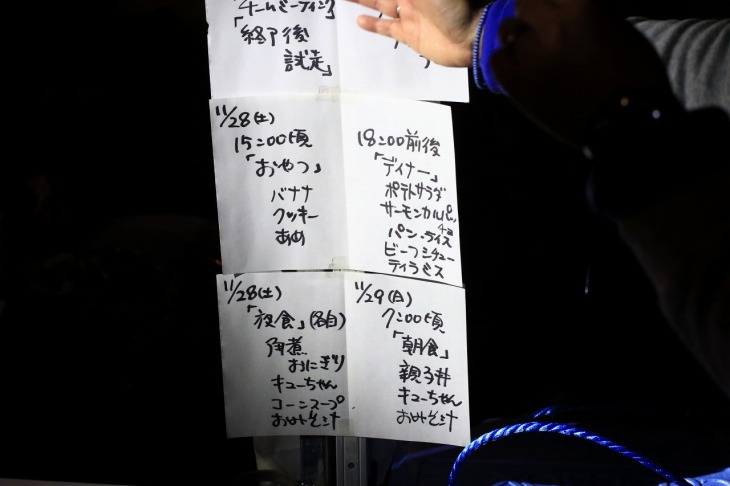 チームミーティング
「終了後
試走」
11/28(土)
15:00頃
「おやつ」
バナナ
クッキー
あめ
18:00前後
「ディナー」
ポテトサラダ
サーモンカルパッチョ
パン・ライス
ビーフシチュー
ティラミス
11/28(土)
「夜食」(各自)
角煮
おにぎり
キューちゃん
コーンスープ
おみそ汁
11/29(日)
7:00頃
「朝食」
親子丼
キューちゃん
おみそ汁